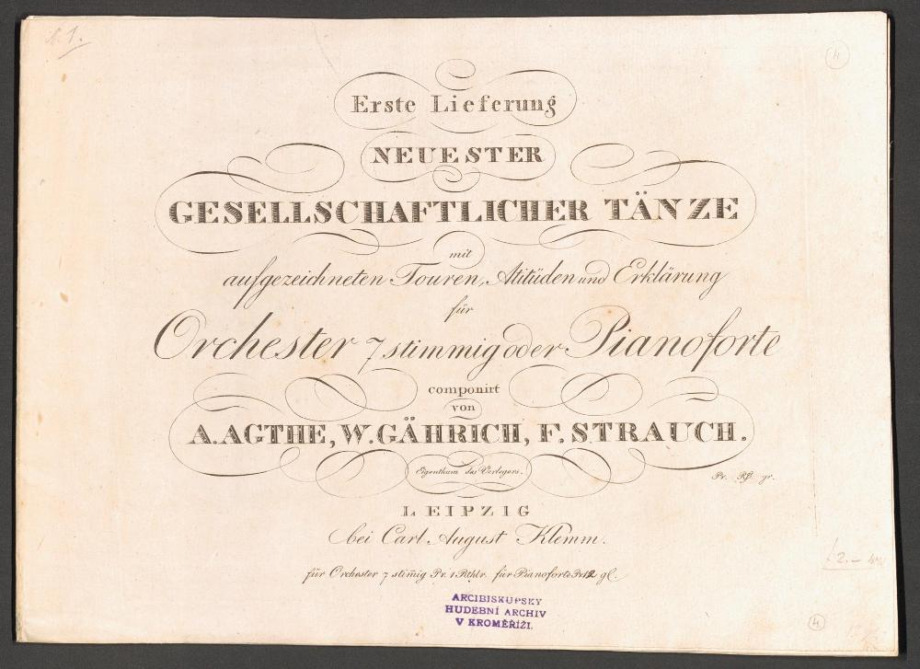 1.
4
Erste Lieferung
NEUESTER
GESELLSCHAFTLICHER TÄNZE
mit
aufgezeichneten Touren, Atitüden und Erklärung
für
Orchester 7 stimmig oder Pianoforte
componirt
von
A. AGTHE, W. GÄHRICH, F. STRAUCH.
Eigenthum des Verlegers.
Pr. Rß. gr.
LEIPZIG
bei Carl August Klemm.
für Orchester 7 stimig Pr. 1 Rthlr. für Pianoforte Pr. 12 gl.
ARCIBISKUPSKÝ
HUDEBNÍ ARCHIV
V KROMĚŘÍŽI.
4